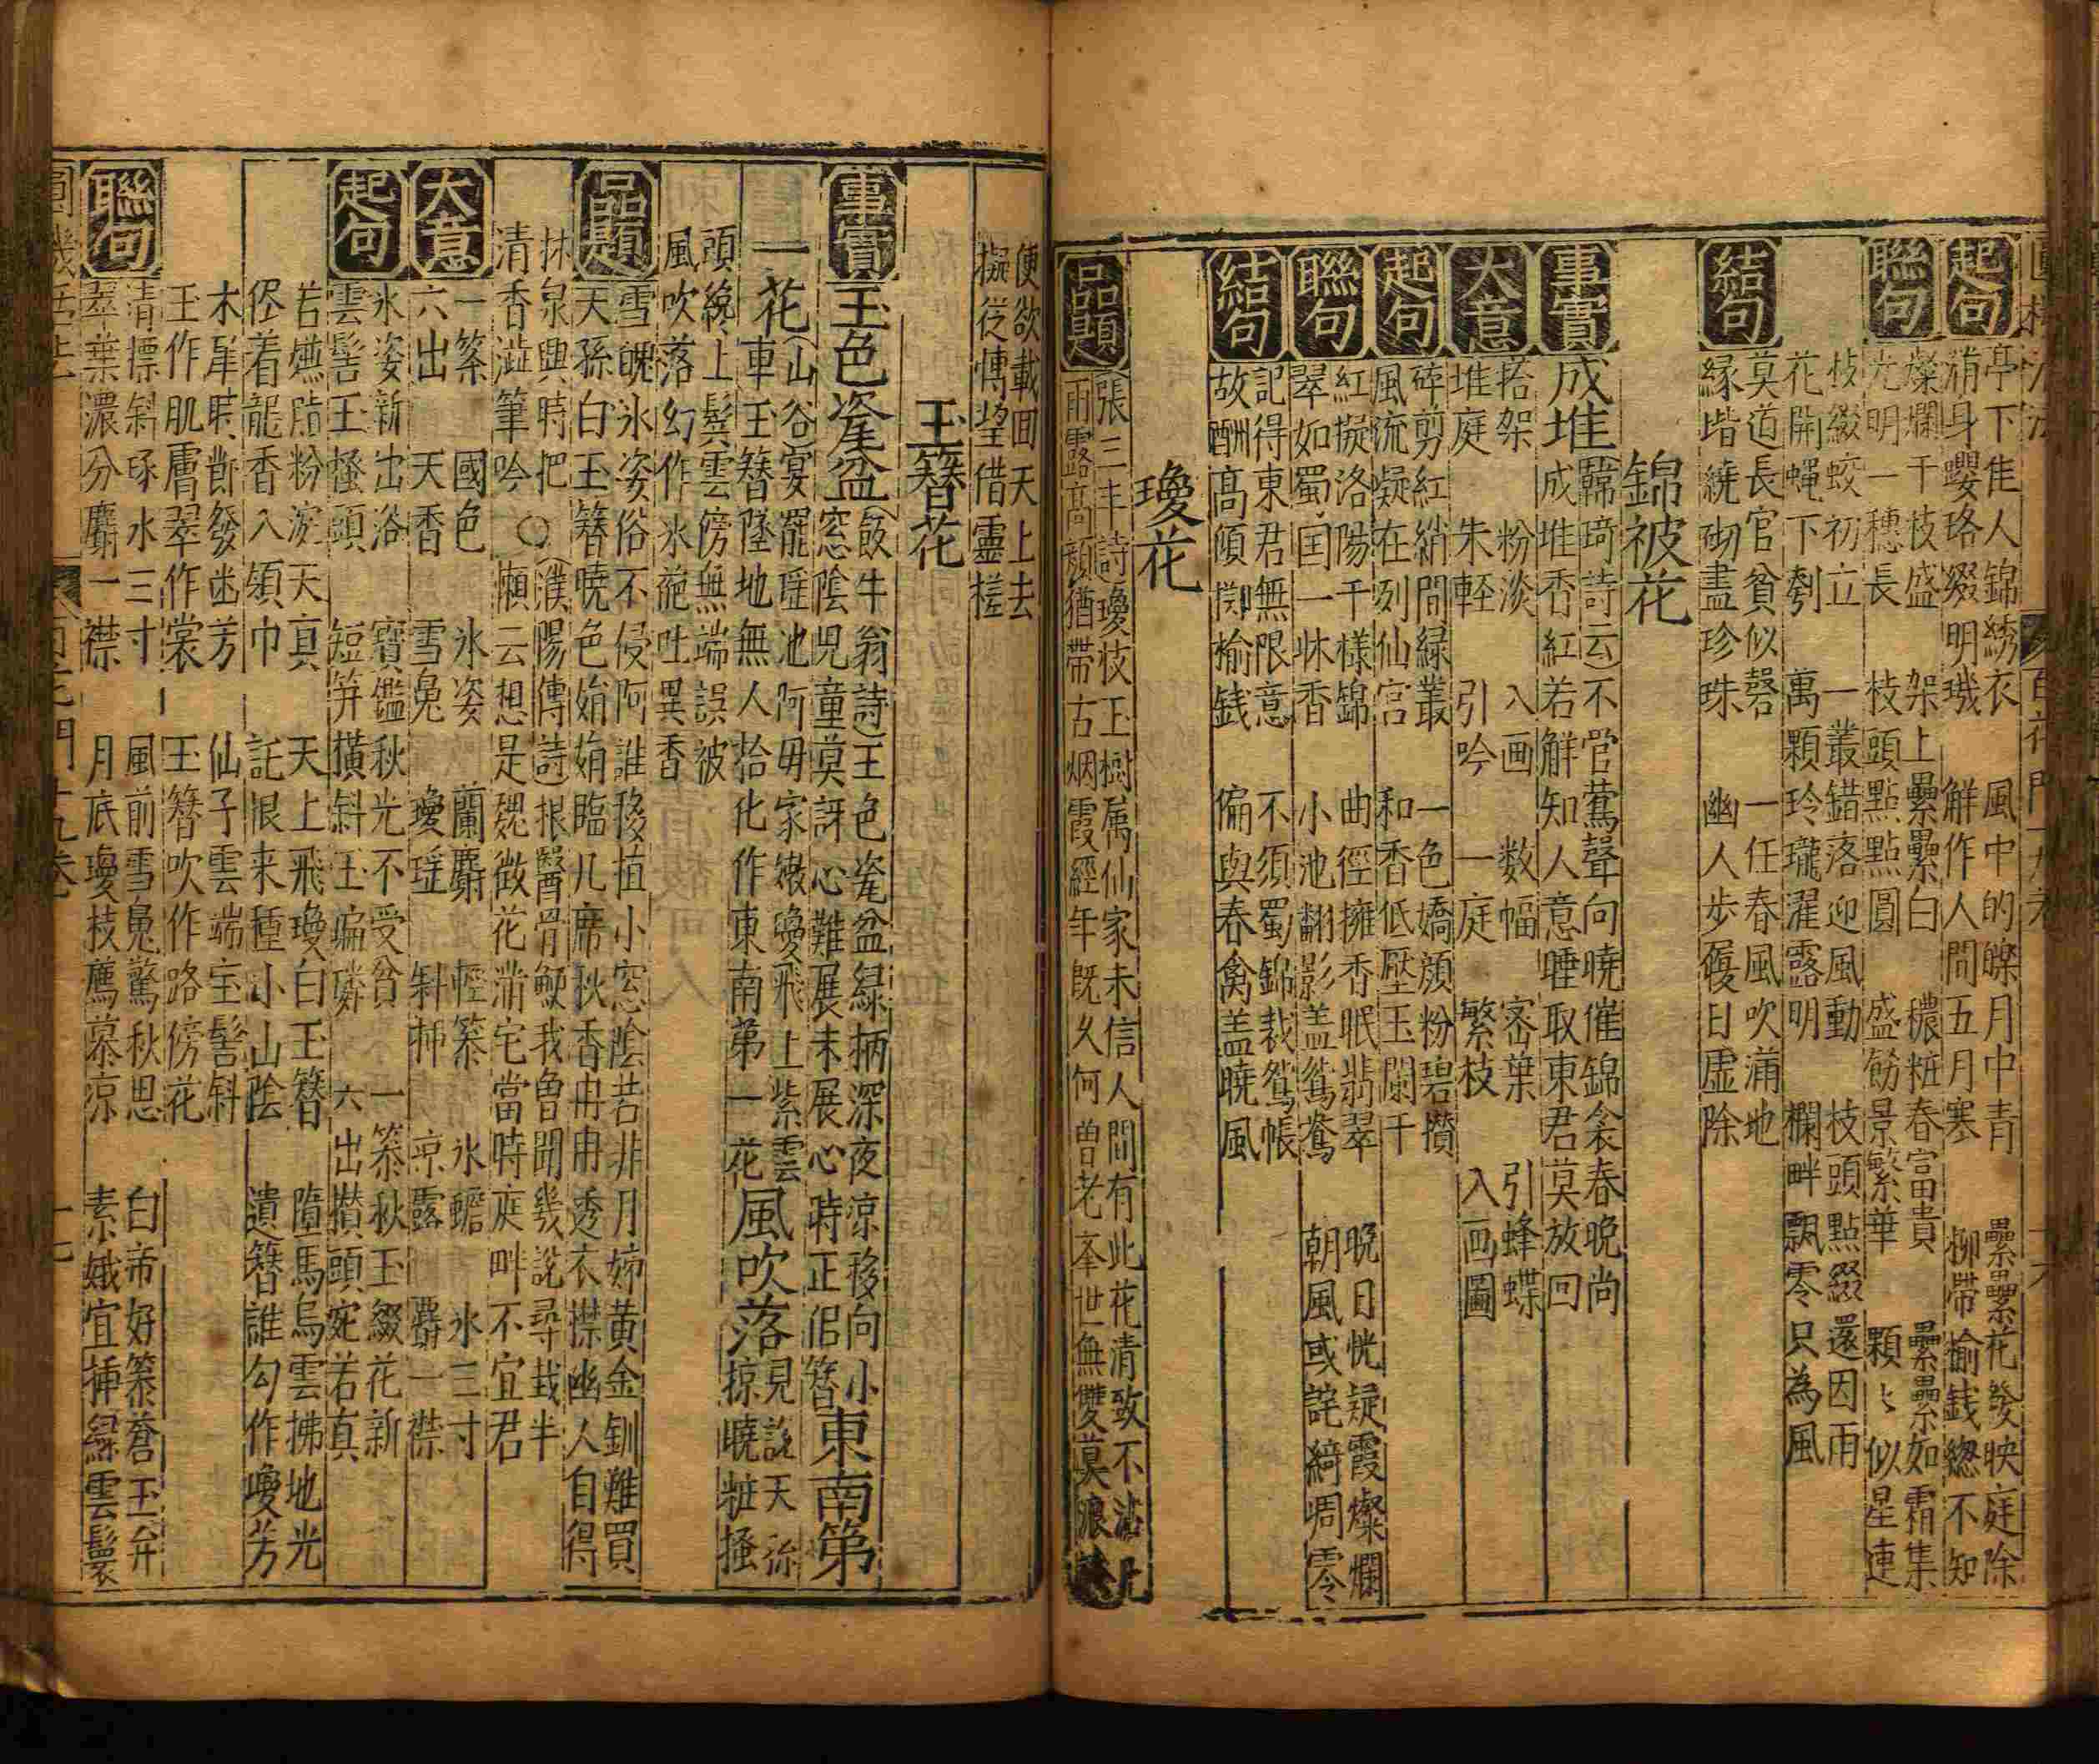 起句
亭下佳人錦綉衣 風中的皪月中青 纍纍花發映庭除
滿身瓔珞綴明璣 解作人間五月寒 柳帶榆錢總不知
聯句
燦爛千枝盛 架上纍纍白 穠粧春富貴 纍纍如霜集
光明一穗長 枝頭點點圓 盛飭景繁華 顆〻似星連
枝綴蛟初立 一叢錯落迎風動 枝頭點綴還因雨
花開蠅下刳 萬顆玲瓏濯露明 欄畔飄零只為風
結句
莫道長官貧似磬 一任春風吹蒲地
緣堦繞砌盡珍珠 幽人步屧日虛除
錦被花
事實
成堆(韓琦詩云)不啻鶯聲向曉催錦衾春晚尚
成堆香紅若解知人意睡取東君莫放回
大意
搭架 粉淡 入画 数幅 密葉 引蜂蝶
堆庭 朱輕 引吟 一庭 繁枝 入画圖
起句
碎剪紅綃間綠叢 一色嬌顏粉碧攢
風流凝在列仙宮 和香低壓玉闌干
聯句
紅擬洛陽千樣錦 曲徑擁香眠翡翠 晚日恍疑霞燦爛
翠如蜀国一牀香 小池翻影盖鴛鴦 朝風或詫綺凋零
結句
記得東君無限意 不須蜀錦裁鴛帳
故酬高傾擲榆錢 偏與春禽盖曉風
瓊花
品題
張三丰詩瓊枝玉樹属仙家未信人間有此花清致不沾
雨露高顏猶帶古烟霞經年既久何曾老峯世無雙莫浪
便欲載回天上去
擬從博望借靈槎
玉簪花
事實
玉色瓷盆(放牛翁詩)玉色瓷盆綠柄深夜涼移向小
窓陰兒童莫訝心難展未展心時正侶簪
東南第
一花(山谷)宴罷瑶池阿母家嫩瓊飛上紫雲
車玉簪墜地無人拾化作東南第一花
風吹落
見說天孫
掠曉粧搔
頭纔上鬂雲傍無端誤被
風吹落幻作氷葩吐異香
品題
雪魄氷姿俗不侵阿誰移植小窓陰若非月姊黃金釧難買
天孫白玉簪曉色娟娟臨几席秋香冉冉透衣襟幽人自得
林泉興時把 (濮陽傳詩)根醫骨鯁我曾聞幾說尋栽半
清香澁筆吟 ○癩云想是魏徵花滿宅當時庭畔不宜君
大意
一簪 國色 氷姿 蘭麝 輕簪 氷蟾 氷三寸
六出 天香 雪兔 瓊瑶 斜挿 凉露 麝一襟
起句
氷姿新出浴 寶鑑秋光不受昏 一簪秋玉綴花新
雲髻玉搔頭 短笄橫斜玉騙磷 六出攢頭宛若真
若嫌脂粉涴天真 天上飛瓊白玉簪 墮馬烏雲拂地光
侭着龍香入領巾 託恨来種小山陰 遺簪誰勾作瓊芳
木犀時節發幽芳 仙子雲端宝髻斜
玉作肌膚翠作裳 玉簪吹作路傍花
聯句
清標斜琢水三寸 風前雪兔驚秋思 白帝好簪蒼玉弁
翠葉濃分麝一襟 月底瓊枝薦慕涼 素娥宜挿綠雲鬟
十七